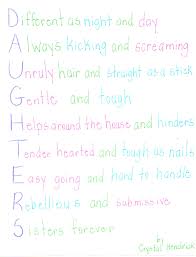 Different as night and day
Always kicking and screaming
Unruly hair and straight as a stick
Gentle and tough
Helps around the house and hinders
Tender hearted and tough as nails
Easy going and hard to handle
Rebellious and submissive
Sisters forever
by
Crystal Hendrick